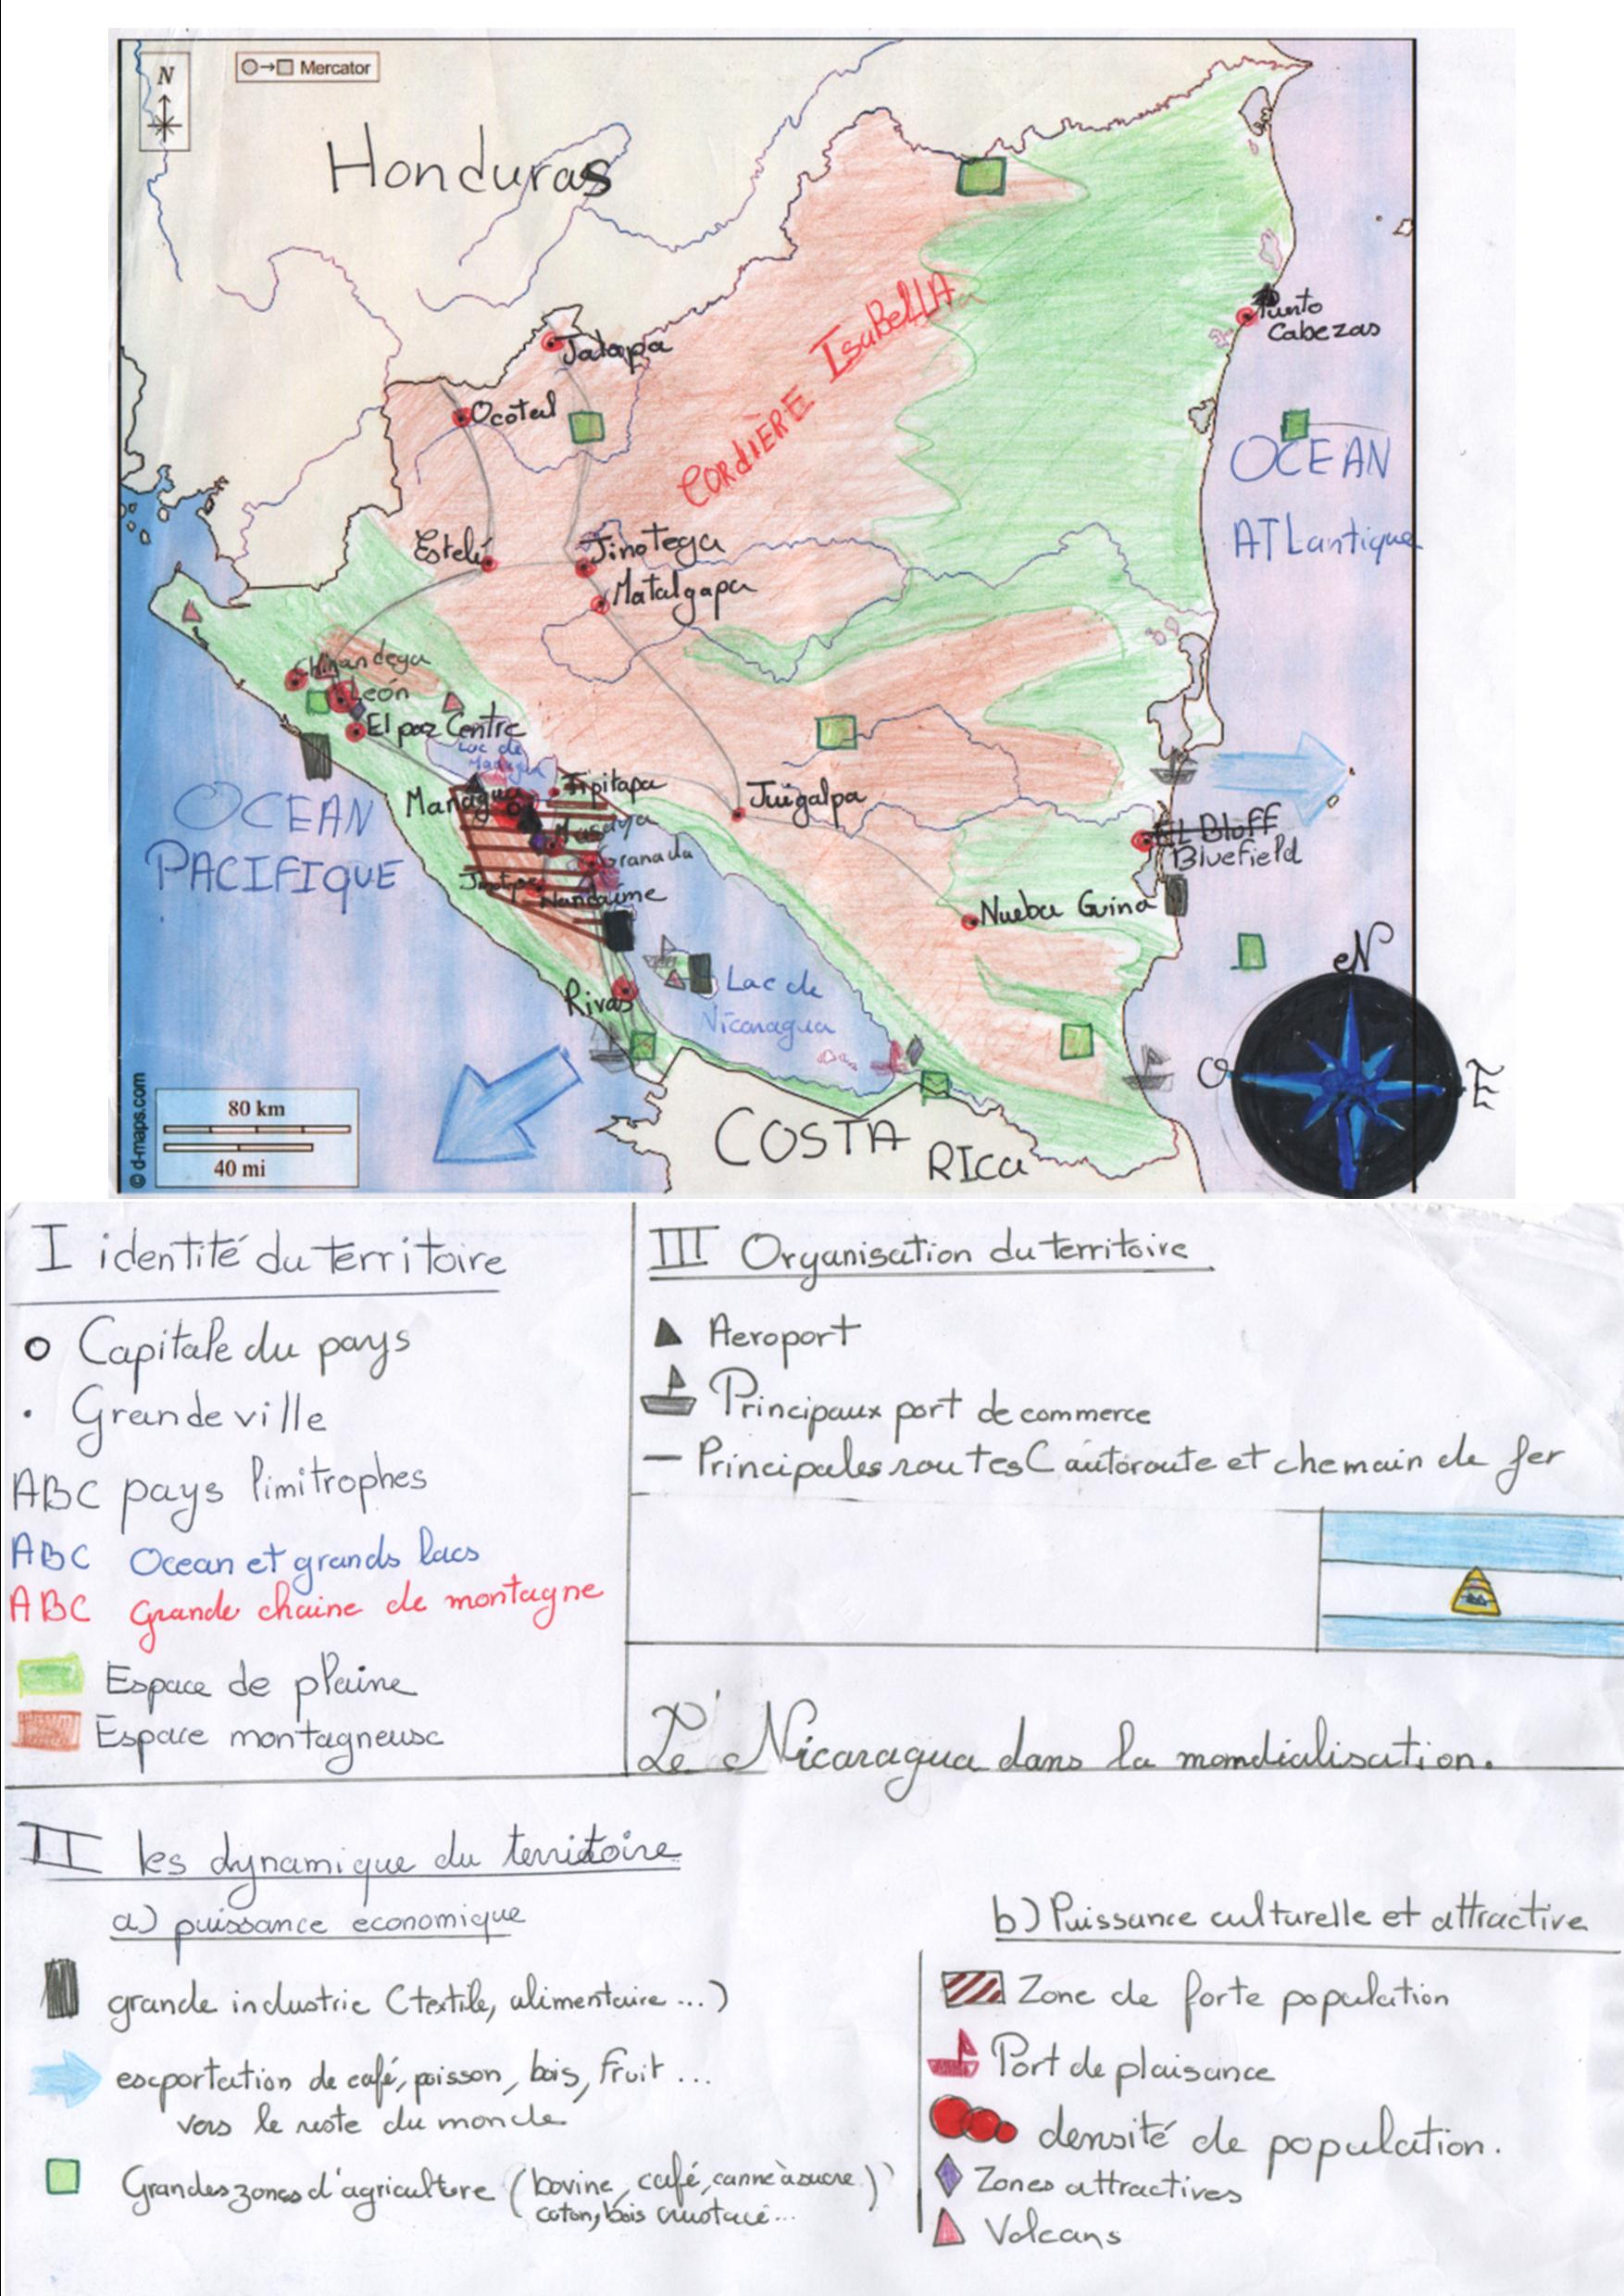 N
Mercator
Honduras
CORdIÈRE IsaBellA
Punto
Cabezas
Jalapa
Ocotal
OCEAN
ATLantique
Estelí
Jinotega
Matalgapa
Chinandega
León
El paz Centre
Lac de
Managua
Tipitapa
Managua
Masaya
Juigalpa
OCEAN
PACIFIQUE
EL Bluff
Bluefield
Granada
Nandaime
Nueba Guina
Rivas
Lac de
Nicaragua
N
O
E
80 km
40 mi
© d-maps.com
COSTA RIca
I identité du territoire
Capitale du pays
Grande ville
ABC pays limitrophes
ABC Ocean et grands lacs
ABC Grande chaine de montagne
Espace de plaine
Espace montagneux
III Organisation du territoire
Aeroport
Principaux port de commerce
Principales routes ( autoroute et chemain de fer
Le Nicaragua dans la mondialisation.
II les dynamique du territoire
a) puissance economique
grande industrie (textile, alimentaire ...)
exportation de café, poisson, bois, fruit ...
vers le reste du monde
Grandes zones d'agriculture (bovine, café, canne à sucre)
coton, bois crustacé...
b) Puissance culturelle et attractive
Zone de forte population
Port de plaisance
densité de population.
Zones attractives
Volcans